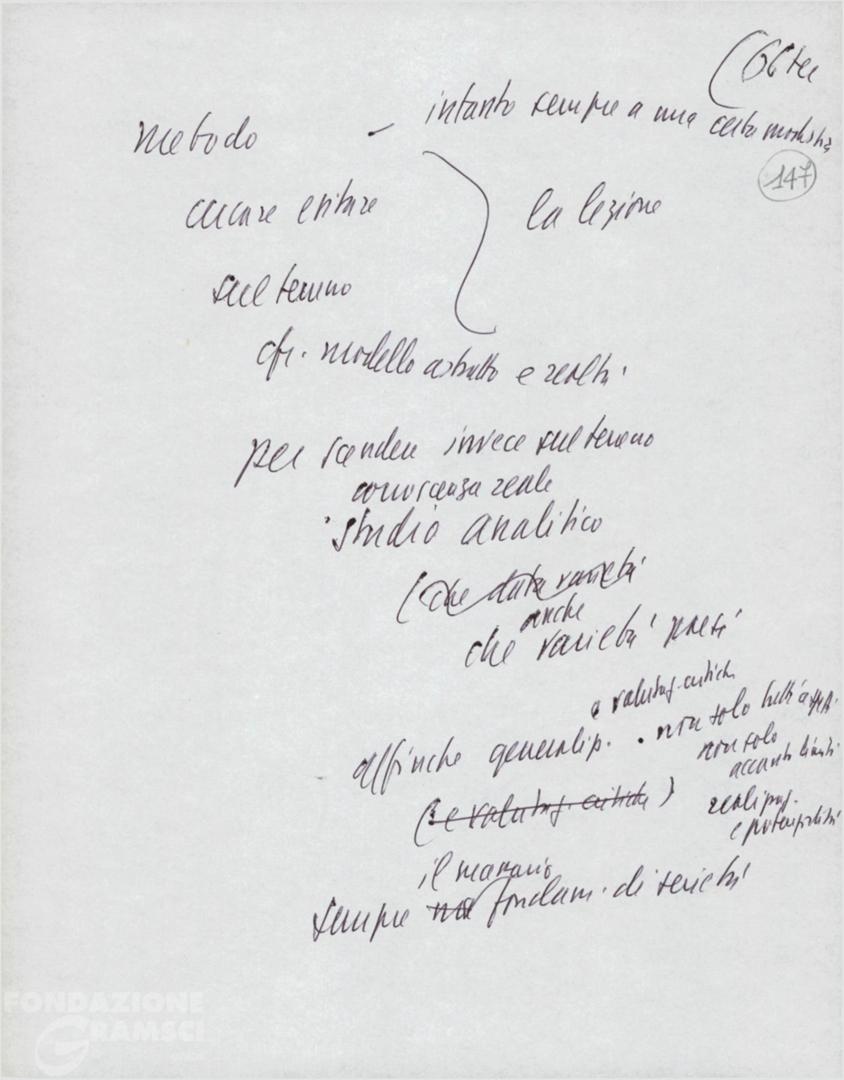 (66 ter
metodo - intanto sempre a una certa modestia
147
cercare evitare la lezione
sul terreno
cfr. modello astratto e realtà
per scendere invece sul terreno
conoscenza reale
studio analitico
(che data varietà
anche
che varietà paesi
e valutaz. critiche
affinche generaliz. . non solo tutti aspett.
non solo
accanto limiti
(e valutaz. critiche) realizzaz.
e potenzialità
il marxismo
sempre fondam. di serietà
FONDAZIONE
GRAMSCI